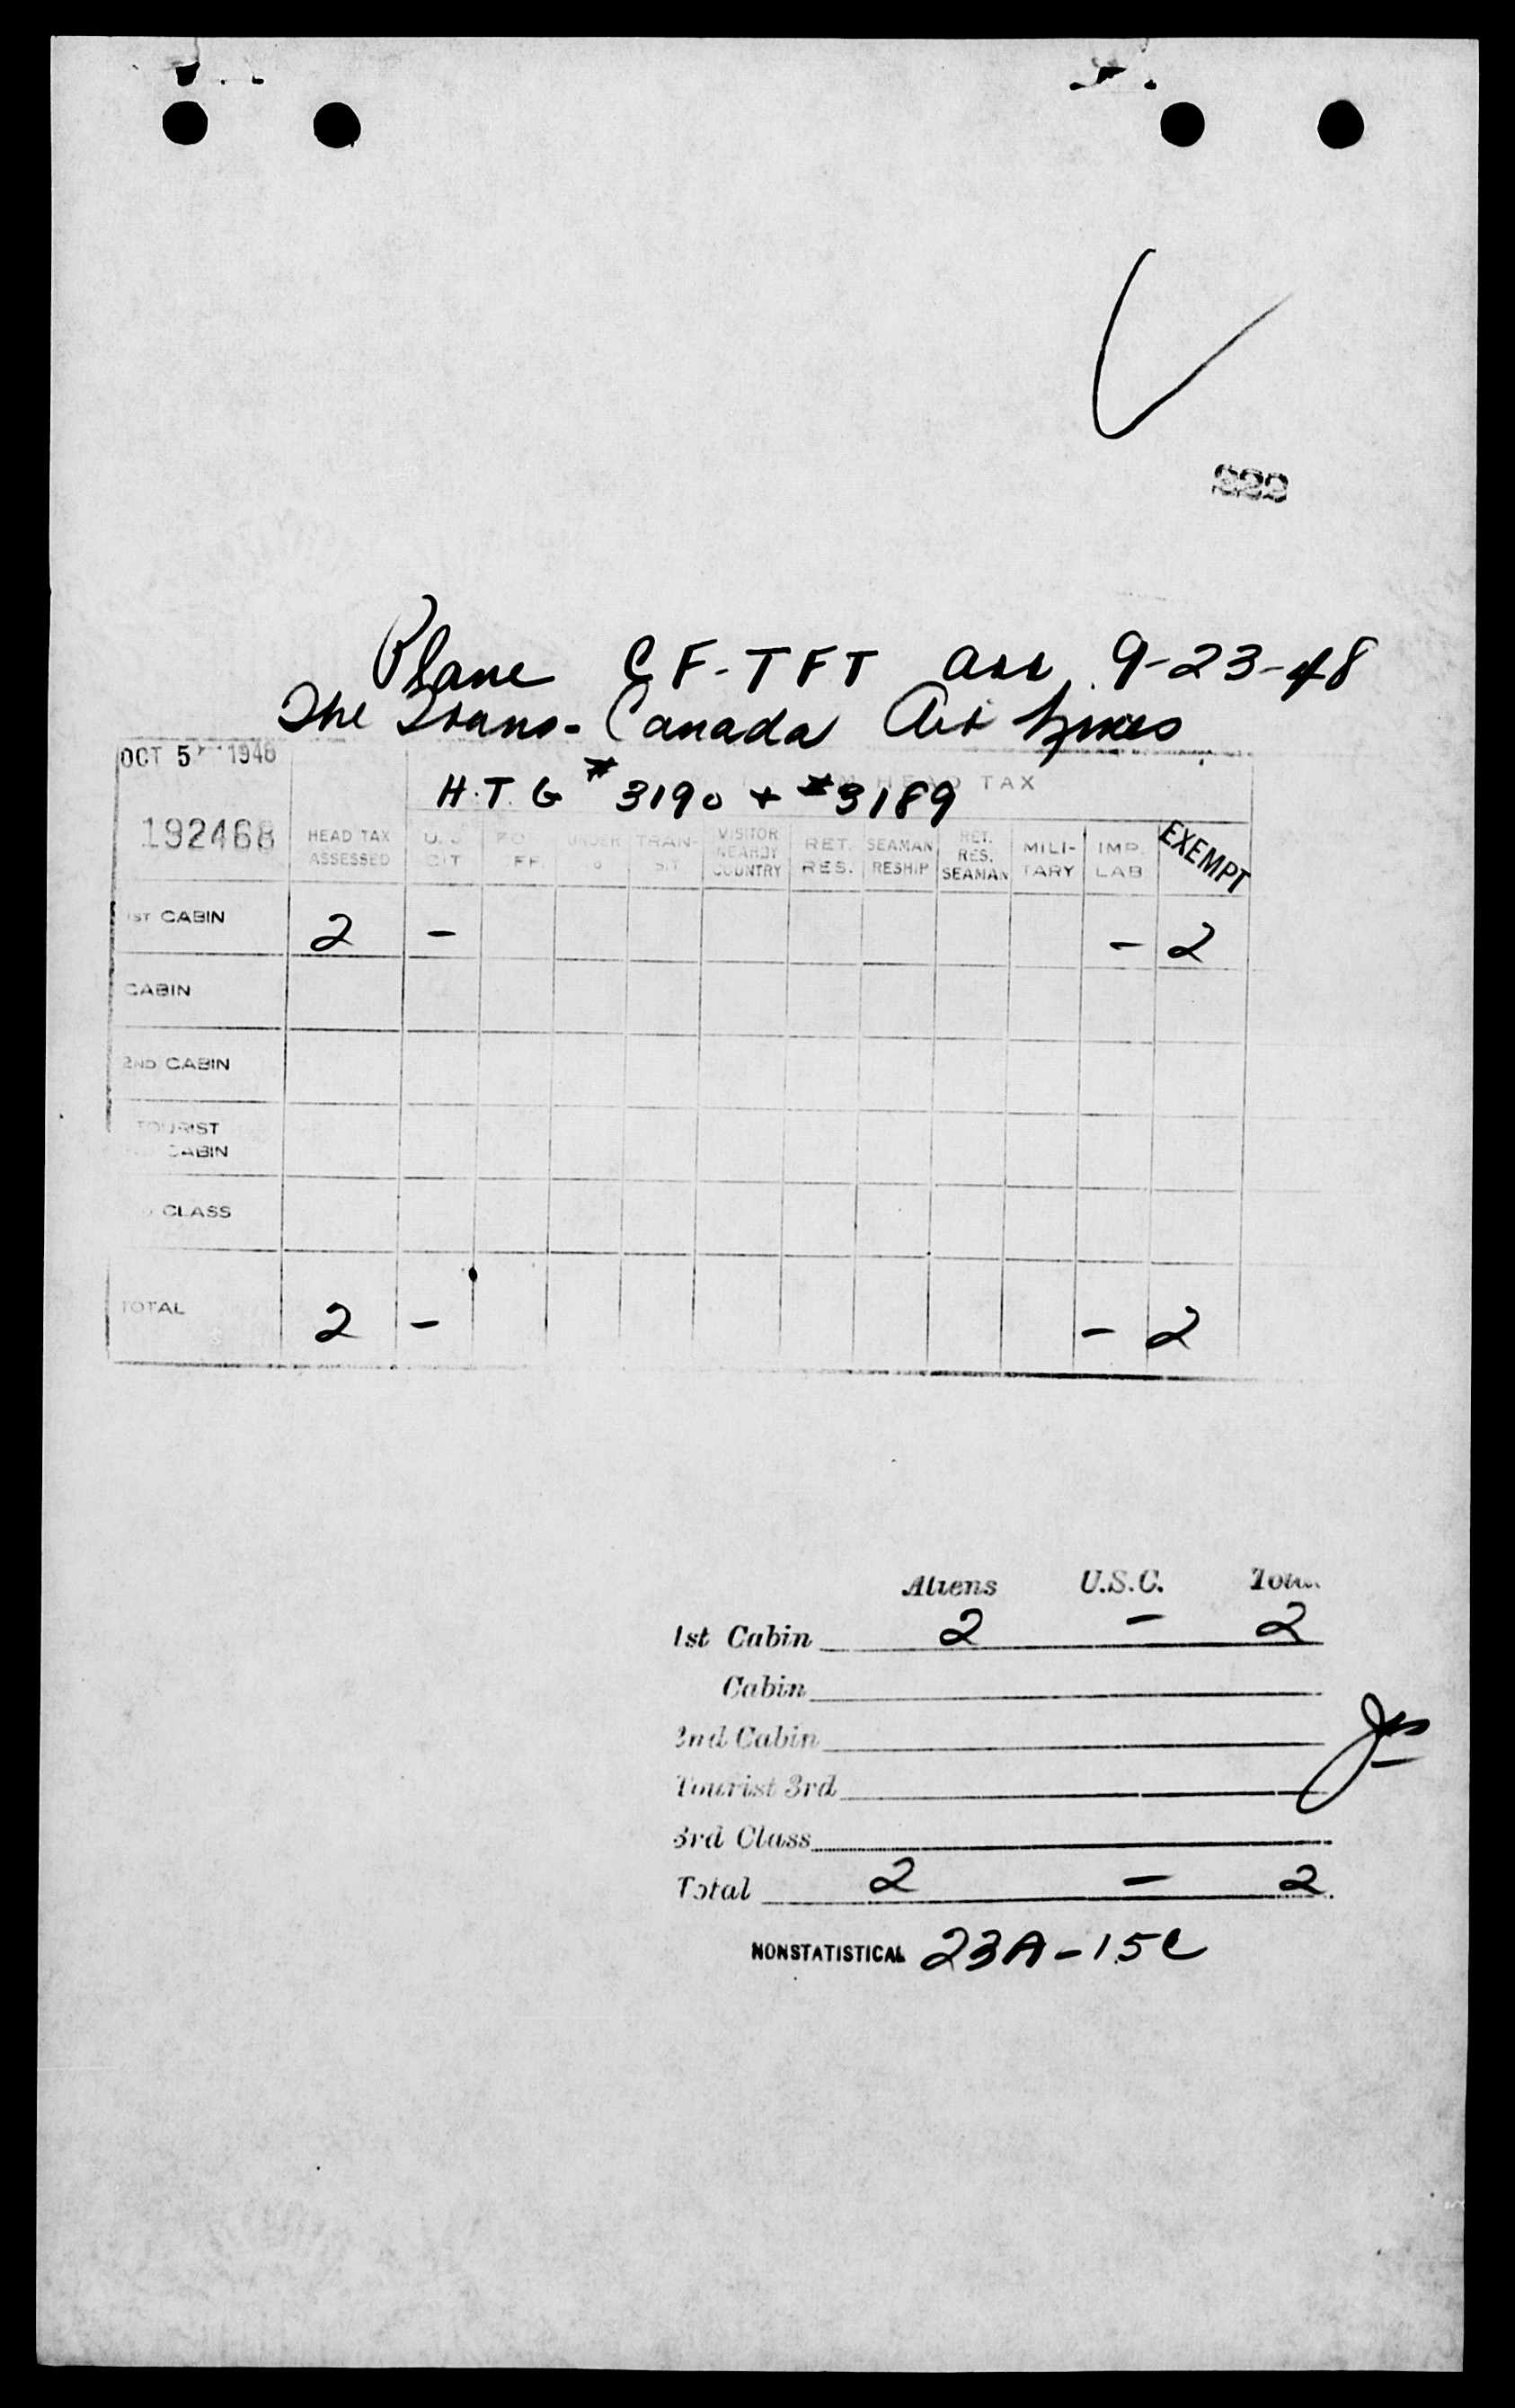 Plane CF-TFT arr. 9-23-48
The Trans-Canada Air Lines
OCT 5 1948
H.T.G #3190 + #3189
HEAD TAX
192468
HEAD TAX ASSESSED
U.S. CIT
UNDER
TRAN-SIT
VISITOR NEARBY COUNTRY
RET. RES.
SEAMAN RESHIP
RET. RES. SEAMAN
MILI-TARY
IMP. LAB
EXEMPT
1ST CABIN 2 - - 2
CABIN
2ND CABIN
TOURIST
CABIN
CLASS
TOTAL 2 - - 2
Aliens U.S.C. Total
1st Cabin 2 - 2
Cabin
2nd Cabin
Tourist 3rd
3rd Class
Total 2 - 2
NONSTATISTICAL 23A-15C